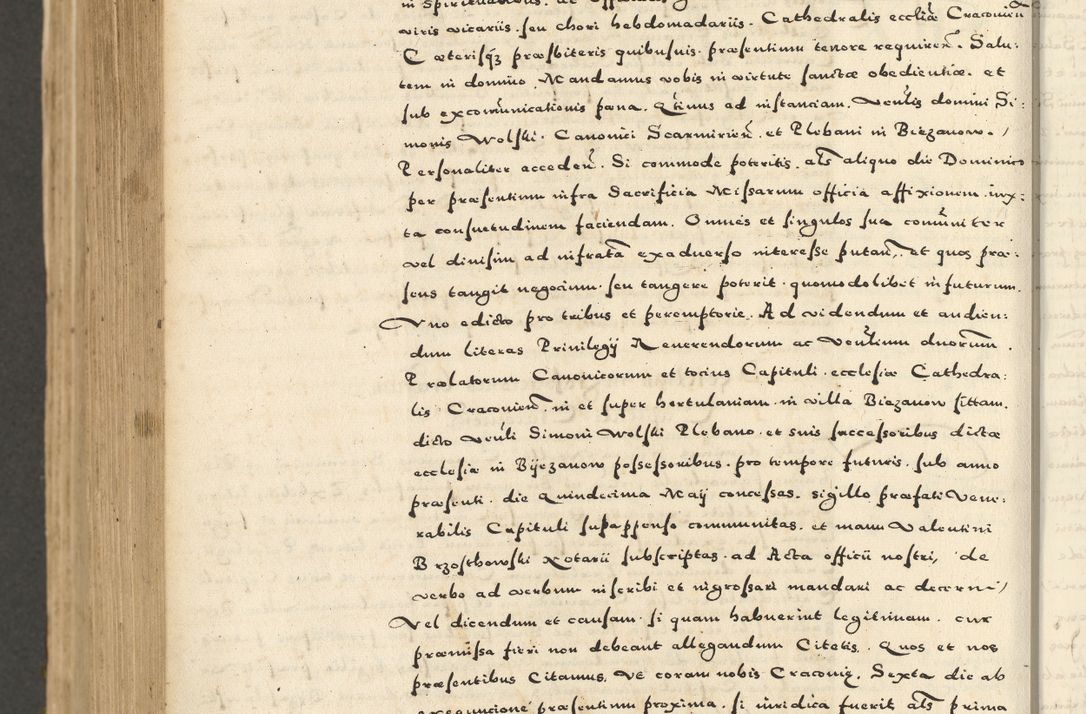 in Spiritualibus, ac Officialis
viris vicariis, seu chori hebdomadariis. Cathedralis ecclīæ Cracovieñ
Cæterisqꝫ præsbiteris quibusvis. præsentium tenore requireñ. Salu:
tem in domino. Mandamus vobis in virtute sanctæ obedientiæ. et
sub excom̃unicationis pæna. Qtinus ad instanciam. Veñlis domini Si:
monis Wolski. Canonici Scarmirieñ. et Plebani in Biezanow. /
Personaliter accedeñ. Si commode poteritis. als̃ aliquo die Dominico
per præsentium infra Sacrificia Missarum officia affixionem iux:
ta consuetudinem faciendam. Omnes et singulos sua com̃uniter
vel divisim ad infrata͂ exadverso interesse putañ. et quos præ:
sens tangit negocium. seu tangere poterit. quomodolibet in futurum.
Vno edicto pro tribus et peremptorie. Ad videndum et audien:
dum literas Privilegÿ Reverendorum ac Veñlium dnorum̃.
Prælatorum Canonicorum et tocius Capituli. ecclesiæ Cathedra:
lis Cracovieñ. in et super hortulaniam. in villa Biezanow sittam.
dicto veñli Simoni Wolski Plebano. et suis successoribus dictæ
ecclesiæ in Bÿezanow possessoribus. pro tempore futuris. sub anno
præsenti. die Quindecima Maÿ concessas. sigillo præfati Vene:
rabilis Capituli supappenso communitas. et manu Valentini
Brzosthowski Notarii subscriptas. ad Acta officii nostri, de
verbo ad verbum inscribi et ingrossari mandari ac decerni /
Vel dicendum et causam. si quam habuerint legitimam. cur
præmissa fieri non debeant allegandum Citetis. Quos et nos
præsentibus Citamus. Vt coram nobis Cracoviæ. Sexta die ab
executione præsentium proxima. si iuridica fuerit als̃ prima